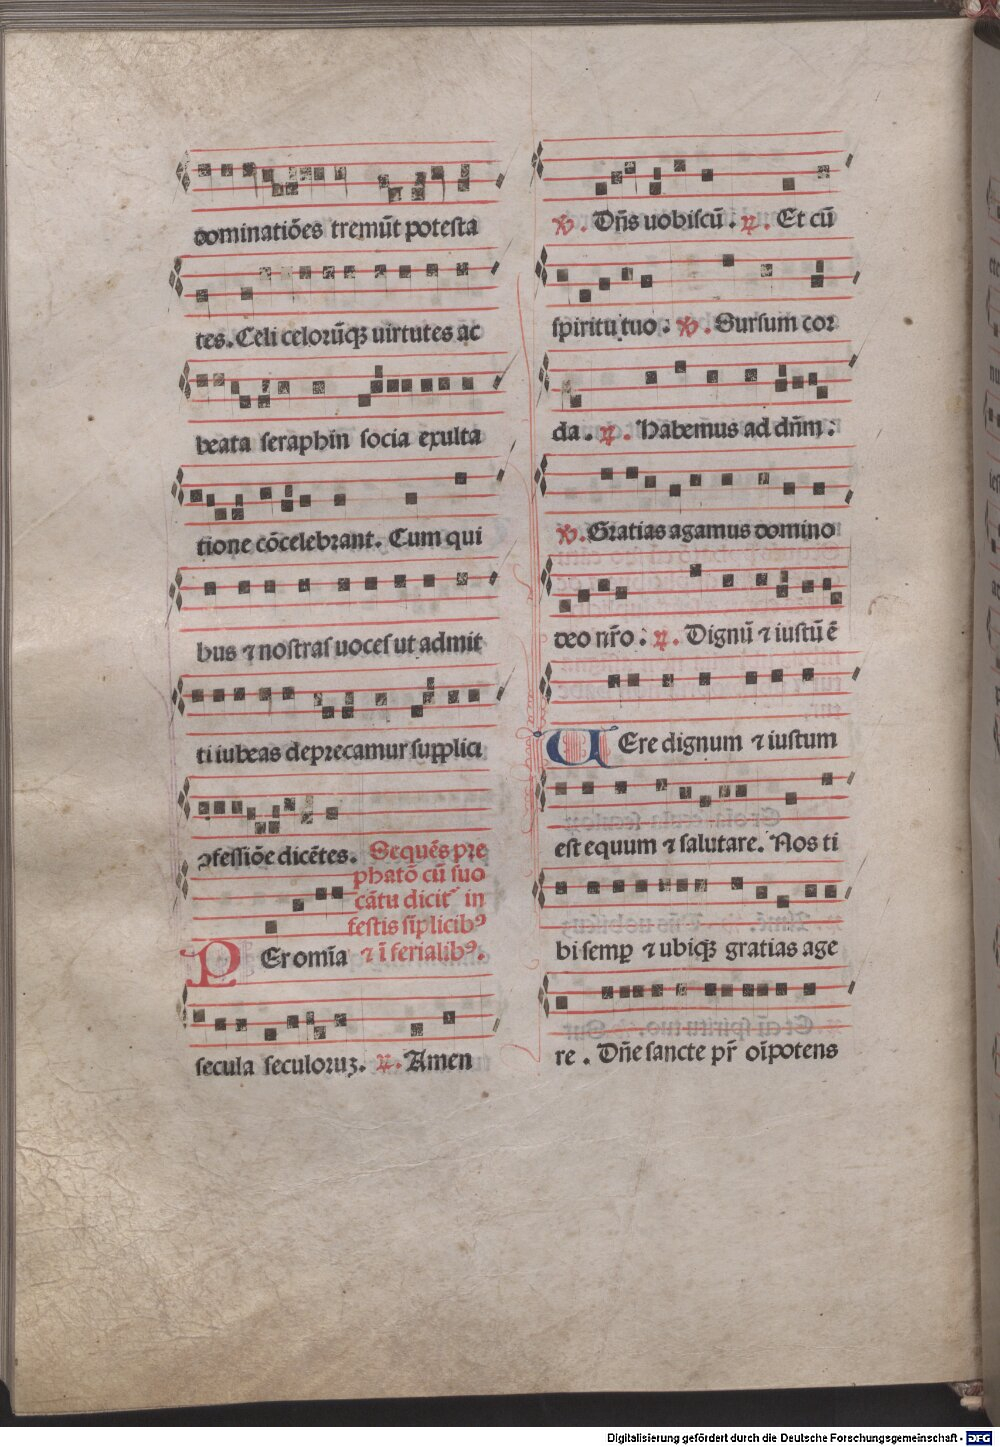 dominatiões tremũt potesta
tes. Celi celorũqꝫ uirtutes ac
beata seraphin socia exulta
tione cõcelebrant. Cum qui
bus ⁊ nostras uoces ut admit
ti iubeas deprecamur supplici
ꝯfessiõe dicẽtes. Sequẽs pre
phatõ cũ suo
cãtu dicit᷑ in
festis sĩplicibꝰ
PEr omĩa ⁊ ĩ ferialibꝰ.
secula seculoruꝫ. ℟. Amen
℣. Dñs uobiscũ. ℟. Et cũ
spiritu tuo. ℣. Sursum cor
da. ℟. Habem̃us ad dñm.
℣. Gratias agamus domino
deo nr̃o. ℟. Dignũ ⁊ iustũ ẽ
UEre dignum ⁊ iustum
est equum ⁊ salutare. Nos ti
bi semꝑ ⁊ ubiqꝫ gratias age
re. Dñe sancte pr̃ oĩpotens
Digitalisierung gefördert durch die Deutsche Forschungsgemeinschaft - DFG